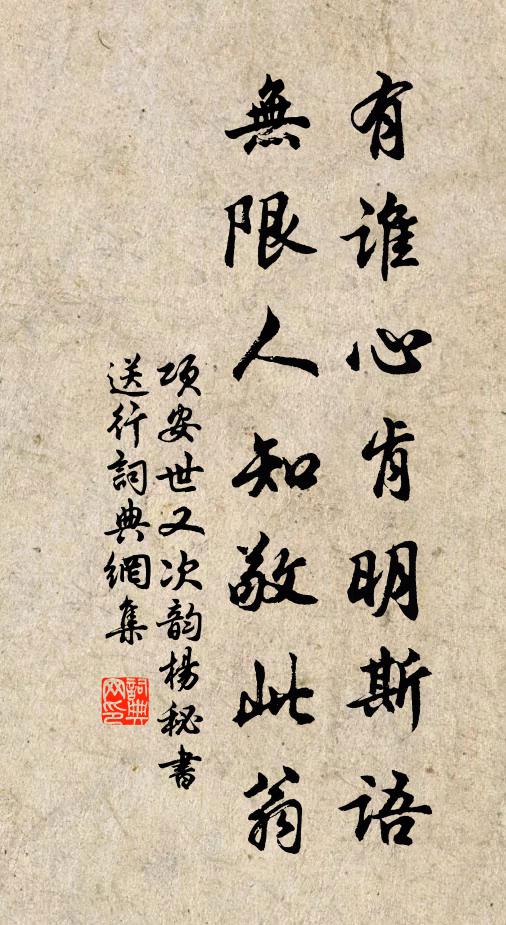 有谁心肯明斯语
無限人知敬此翁
项安世又次韵楊秘書
送行詞典網集
詞典
网印